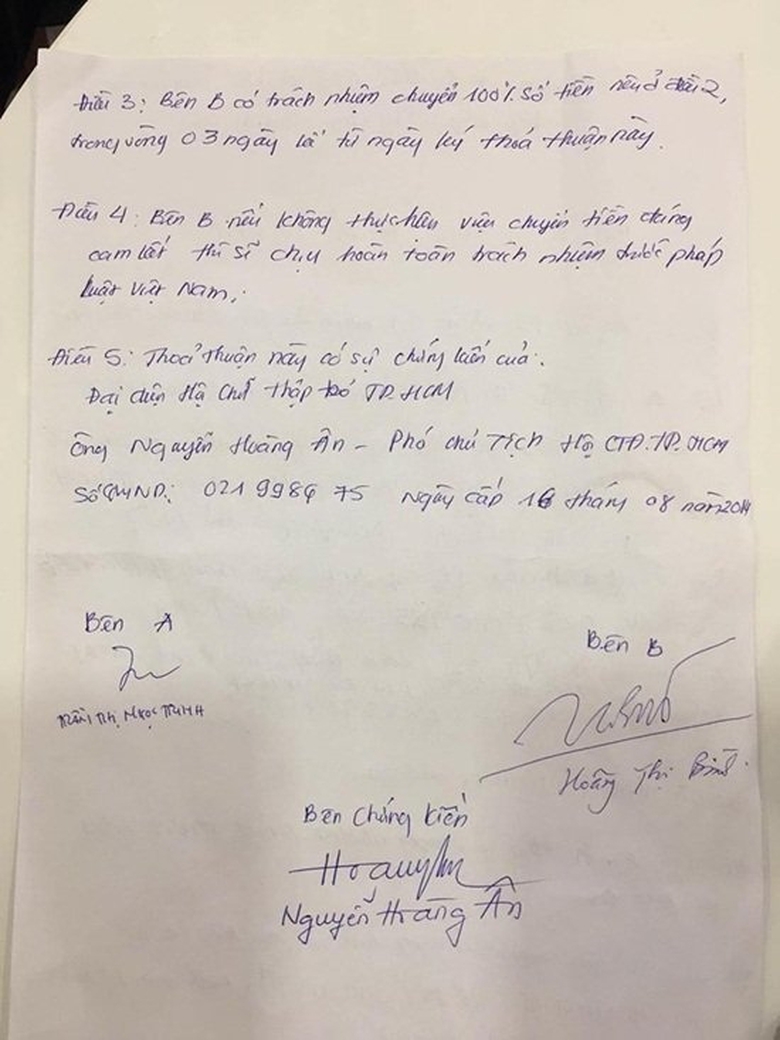 Điều 3: Bên B có trách nhiệm chuyển 100% số tiền nêu ở điều 2,
trong vòng 03 ngày kể từ ngày ký thoả thuận này.
Điều 4: Bên B nếu không thực hiện việc chuyển tiền đúng
cam kết thì sẽ chịu hoàn toàn trách nhiệm trước pháp
luật Việt Nam.
Điều 5: Thoả thuận này có sự chứng kiến của:
Đại diện Hội Chữ thập đỏ TP.HCM
Ông Nguyễn Hoàng Ân - Phó chủ Tịch Hội CTĐ.TP.HCM
Số CMND: 021998475 Ngày cấp 16 tháng 08 năm 2014
Bên A
Bên B
TRẦN THỊ NGỌC TRINH
Hoàng Thị
Bên Chứng kiến
Nguyễn Hoàng Ân